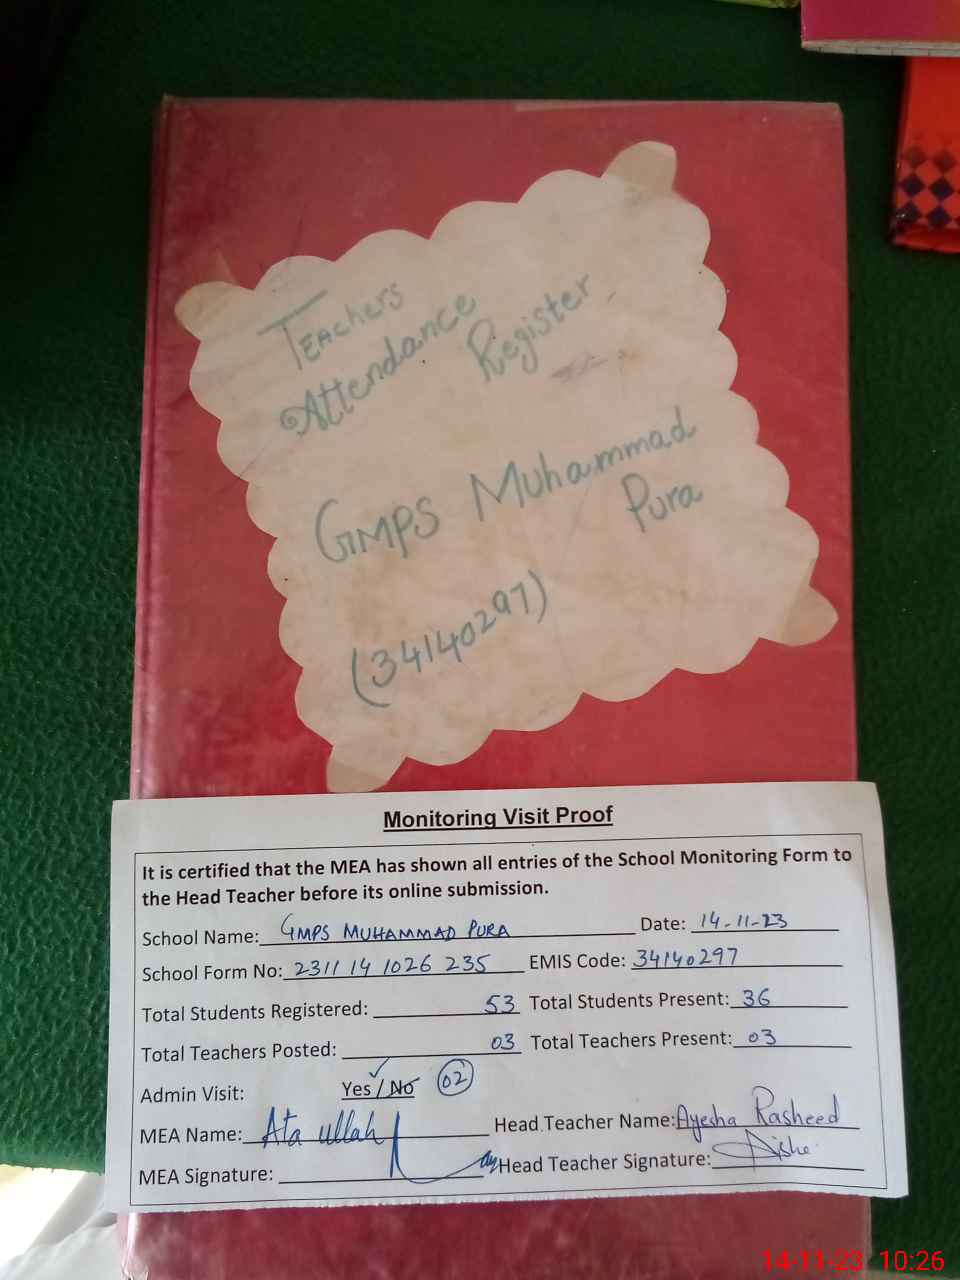 Teachers
Attendance
Register
GMPS Muhammad
Pura
(34140297)
Monitoring Visit Proof
It is certified that the MEA has shown all entries of the School Monitoring Form to
the Head Teacher before its online submission.
School Name: GMPS MUHAMMAD PURA Date: 14-11-23
School Form No: 2311 14 1026 235 EMIS Code: 34140297
Total Students Registered: 53 Total Students Present: 36
Total Teachers Posted: 03 Total Teachers Present: 03
Admin Visit: Yes / No 02
MEA Name: Ata ullah Head Teacher Name: Ayesha Rasheed
MEA Signature: Head Teacher Signature:
14-11-23 10:26